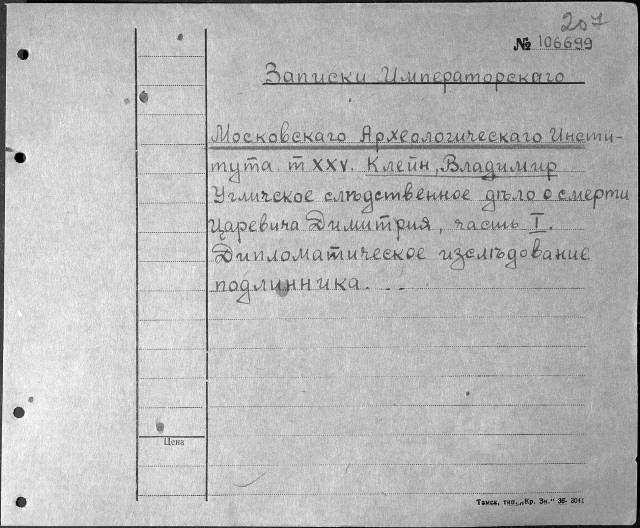 207
№ 106699
Записки Императорскаго
Московскаго Археологическаго Инсти-
тута. т XXV. Клейн, Владимир
Угличское слѣдственное дѣло о смерти
Царевича Димитрия, часть I.
Дипломатическое изслѣдование
подлинника. . .
Цена
Тамск, тип. „Кр. Зн.“ 36- 3041